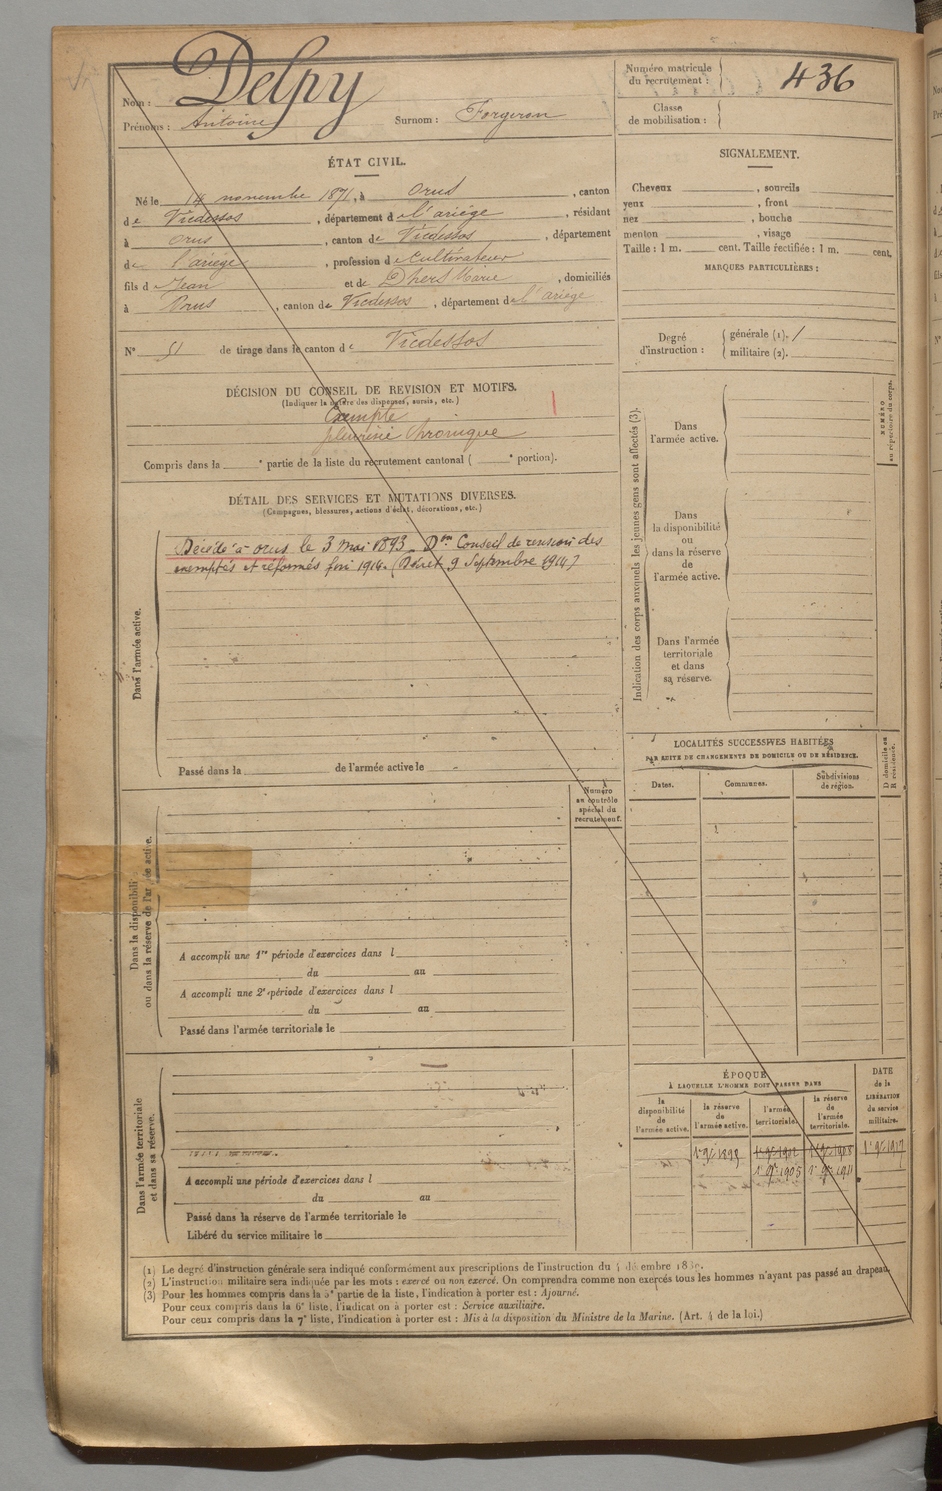 Nom : Delpy
Prénoms : Antoine Surnom : Forgeron
Numéro matricule
du recrutement : 436
Classe
de mobilisation :
ÉTAT CIVIL.
Né le 14 novembre 1871, à Orus, canton
de Vicdessos, département de l'ariège, résidant
à Orus, canton de Vicdessos, département
de l'ariège, profession de Cultivateur
fils de Jean et de Dhers Marie, domiciliés
à Orus, canton de Vicdessos, département de l'ariège
N° 51 de tirage dans le canton de Vicdessos
SIGNALEMENT.
Cheveux , sourcils
yeux , front
nez , bouche
menton , visage
Taille : 1 m. cent. Taille rectifiée : 1 m. cent.
MARQUES PARTICULIÈRES :
Degré
d'instruction :
générale (1). 1
militaire (2).
DÉCISION DU CONSEIL DE REVISION ET MOTIFS.
(Indiquer la nature des dispenses, sursis, etc.)
Exempté
pleurésie chronique
Compris dans la e partie de la liste du recrutement cantonal ( e portion).
DÉTAIL DES SERVICES ET MUTATIONS DIVERSES.
(Campagnes, blessures, actions d'éclat, décorations, etc.)
Dans l'armée active.
Décédé à Orus le 3 mai 1893. Don Conseil de revision des
exemptés et réformés fin 1914. (Décret 9 Septembre 1914)
Passé dans la de l'armée active le
Indication des corps auxquels les jeunes gens sont affectés (3).
Dans
l'armée active.
Dans
la disponibilité
ou
dans la réserve
de
l'armée active.
Dans l'armée
territoriale
et dans
sa réserve.
NUMÉRO
au répertoire du corps.
LOCALITÉS SUCCESSIVES HABITÉES
PAR SUITE DE CHANGEMENTS DE DOMICILE OU DE RÉSIDENCE.
Dates.
Communes.
Subdivisions
de région.
D domicile ou
R résidence.
Numéro
au contrôle
spécial du
recrutement.
Dans la disponibilité
ou dans la réserve de l'armée active.
A accompli une 1re période d'exercices dans l
du au
A accompli une 2e période d'exercices dans l
du au
Passé dans l'armée territoriale le
Dans l'armée territoriale
et dans sa réserve.
A accompli une période d'exercices dans l
du au
Passé dans la réserve de l'armée territoriale le
Libéré du service militaire le
ÉPOQUE
À LAQUELLE L'HOMME DOIT PASSER DANS
la
disponibilité
de
l'armée active.
la réserve
de
l'armée active.
l'armée
territoriale.
la réserve
de
l'armée
territoriale.
DATE
de la
LIBÉRATION
du service
militaire.
1er 9bre 1917
(1) Le degré d'instruction générale sera indiqué conformément aux prescriptions de l'instruction du 4 décembre
(2) L'instruction militaire sera indiquée par les mots : exercé ou non exercé. On comprendra comme non exercés tous les hommes n'ayant pas passé au drapeau.
(3) Pour les hommes compris dans la 5e partie de la liste, l'indication à porter est : Ajourné.
Pour ceux compris dans la 6e liste, l'indication à porter est : Service auxiliaire.
Pour ceux compris dans la 7e liste, l'indication à porter est : Mis à la disposition du Ministre de la Marine. (Art. 4 de la loi.)